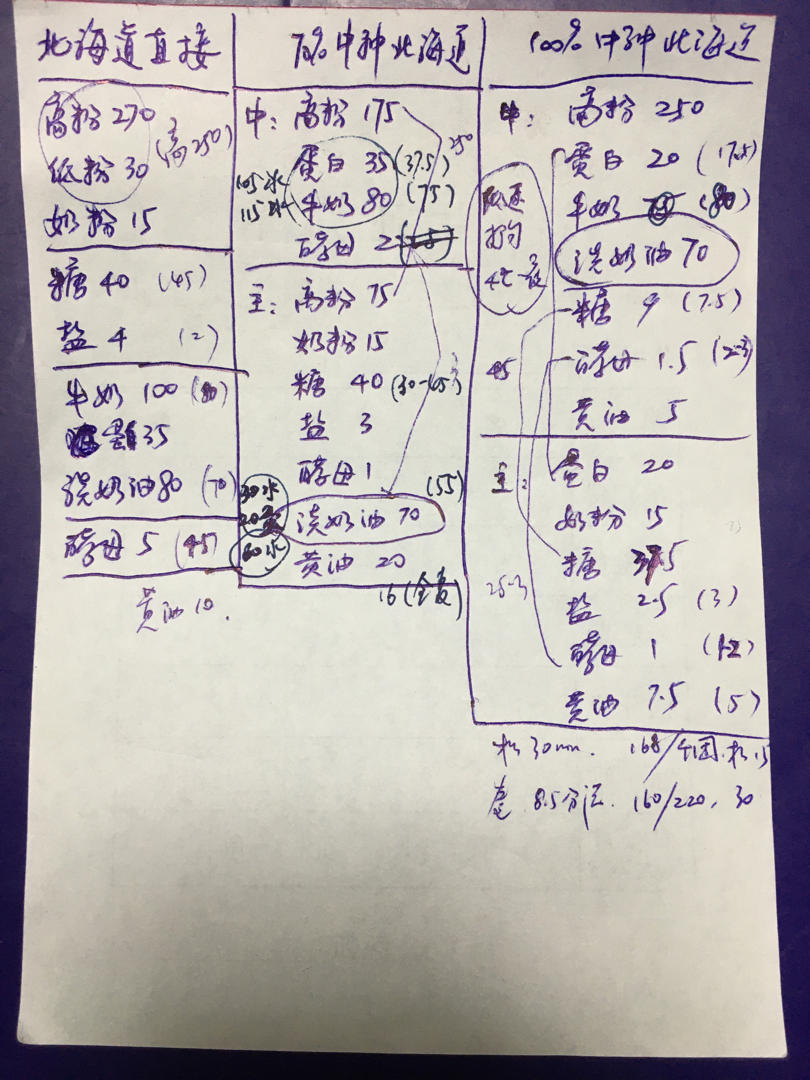 北海道直接
高粉 270
低粉 30 (高250)
奶粉 15
糖 40 (45)
盐 4 (2)
牛奶 100 (80)
蛋 35
淡奶油 80 (70)
酵母 5 (4.5)
黄油 10.
70% 中种北海道
中: 高粉 175
250
蛋白 35 (37.5)
105水
牛奶 80 (75)
115水
酵母 2
主: 高粉 75
奶粉 15
糖 40 (30-45)
盐 3
酵母 1
(55)
30水
20蛋
淡奶油 70
80水
黄油 20
16 (全蛋)
100% 中种北海道
中: 高粉 250
蛋白 20 (17.5)
牛奶 (80)
低速
打匀
淡奶油 70
糖 9 (7.5)
45
酵母 1.5 (2-3)
黄油 5
主: 蛋白 20
奶粉 15
糖
25-3
盐 2.5 (3)
酵母 1 (1-2)
黄油 7.5 (5)
松 30min. 168/个团. 松 15
8.5分满. 160/220, 30